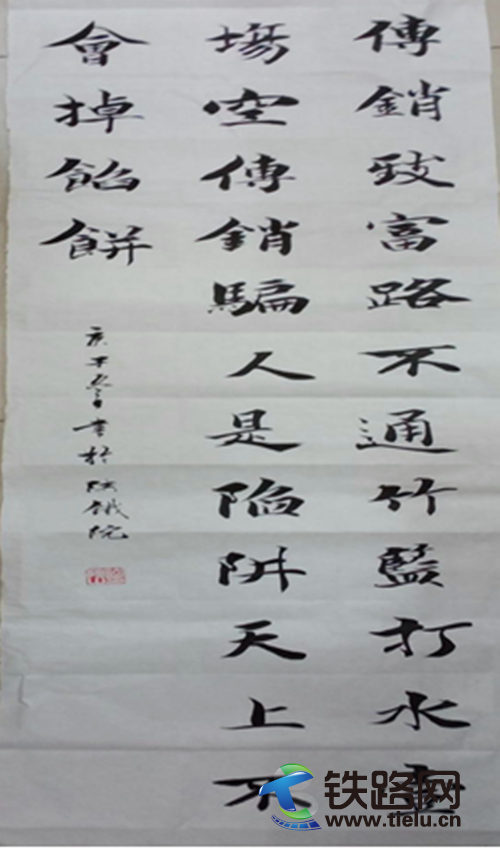 傳銷致富路不通竹籃打水壹
塲空傳銷騙人是陷阱天上不
會掉餡餅
庚子冬書於陝鐵院
铁路网
www.tielu.cn